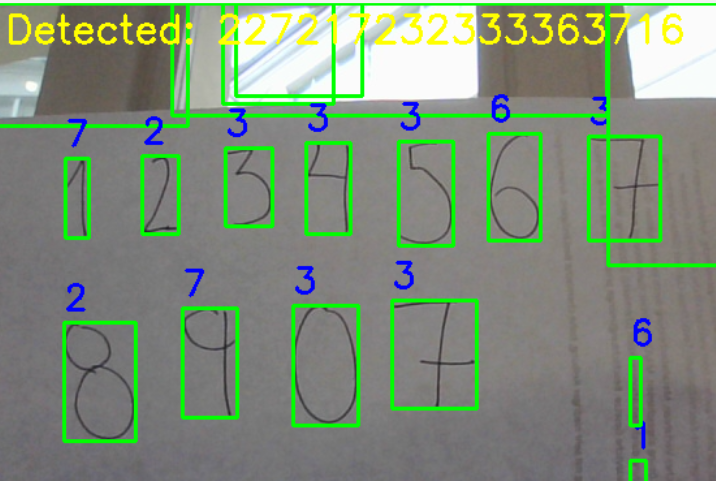 Detected: 227217232333363716
7 2 3 3 3 6 3
1 2 3 4 5 6 7
2 7 3 3
8 9 0 7
6
1